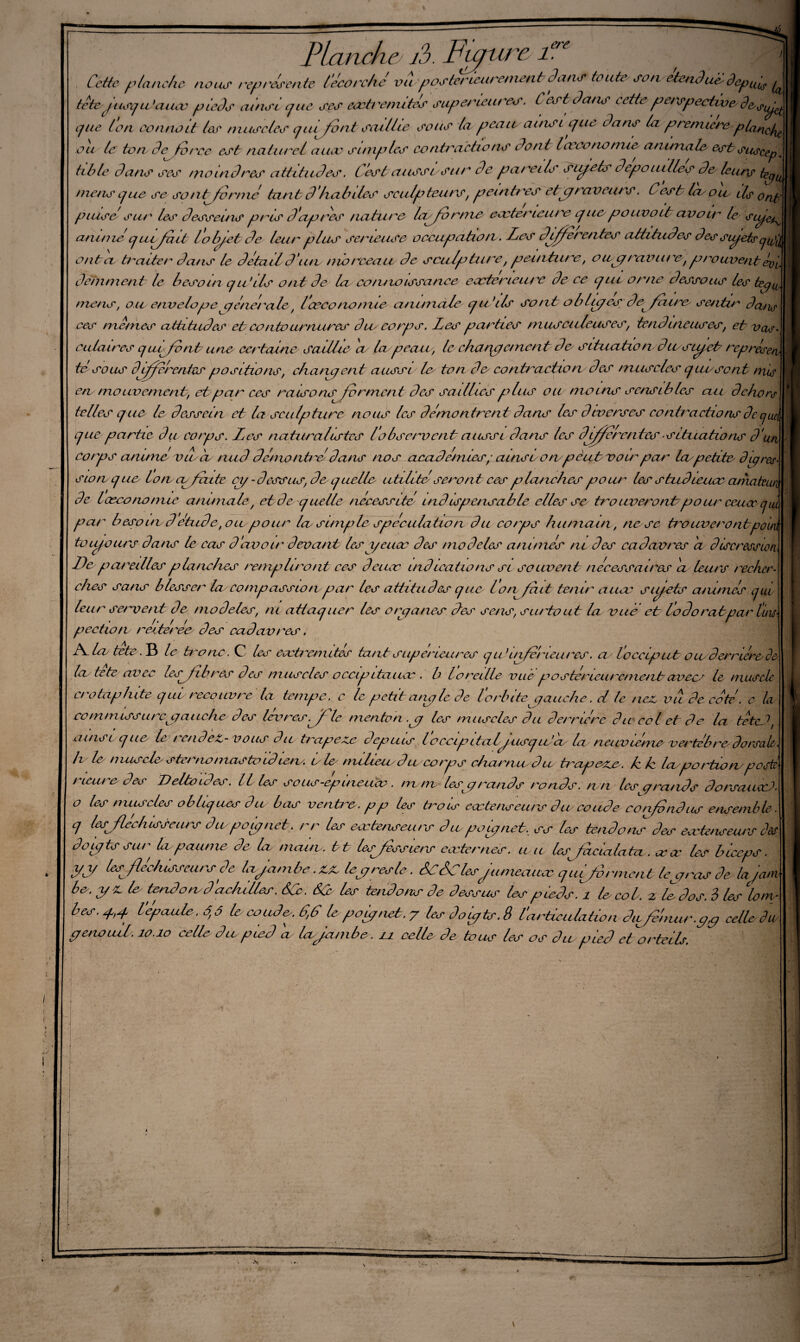 Planche 13. Figure 1.ere
Cette planche nous représente l'écorché vû postérieurement dans toute son etendue depuis la
tête jusqu'aux pieds ainsi que ses extremités superieures. C'est dans cette perspective de sujet
que l'on connoit les muscles qui font saillie sous la peau ainsi que dans la premiere planche
où le ton de force est naturel aux simples contractions dont l'œconomie animale est suscep.
tible dans ses moindres attitudes. C'est aussi sur de pareils sujets dépouillés de leurs tegu
mens que se sont formé tant d'habiles sculpteurs, peintres et graveurs. C'est là où ils ont
puisé sur les desseins pris d'après nature la forme exterieure que pouvoit avoir le sujet
animé qui fait l'objet de leur plus serieuse occupation. Les differentes attitudes des sujets qu'il
ont à traiter dans le détail d'un morceau de sculpture, peinture, ou gravure, prouvent évi
demment le besoin qu'ils ont de la connoissance exterieure de ce qui orne dessous les tegu-
mens, ou envelope génerale, l'œconomie animale qu'ils sont obligés de faire sentir dans
ces mêmes attitudes et contournures du corps. Les parties musculeuses, tendineuses, et vas-
culaires qui font une certaine saillie à la peau, le changement de situation du sujet représen
té sous differentes positions, changent aussi le ton de contraction des muscles qui sont mis
en mouvement, et par ces raisons forment des saillies plus ou moins sensibles au dehors
telles que le dessein et la sculpture nous les démontrent dans les diverses contractions de quel
que partie du corps. Les naturalistes l'observent aussi dans les differentes situations d'un
corps animé vû à nud démontré dans nos académies; ainsi on peut voir par la petite digres-
sion que l'on a faite cy-dessus, de quelle utilité seront ces planches pour les studieux amateurs
de l'œconomie animale, et de quelle nécessité indispensable elles se trouveront pour ceux qui
par besoin d'étude, ou pour la simple spéculation du corps humain, ne se trouveront point
toujours dans le cas d'avoir devant les yeux des modeles animés ni des cadavres à discression.
De pareilles planches rempliront ces deux indications si souvent necessaires à leurs recher-
ches sans blesser la compassion par les attitudes que l'on fait tenir aux sujets animés qui
leur servent de modeles, ni attaquer les organes des sens, surtout la vuë et l'odorat par l'ins-
pection réiterée des cadavres.
A la tête. B le tronc. C les extremités tant supérieures qu'inférieures. a l'occiput ou derriere de
la tête avec les fibres des muscles occipitaux. b l'oreille vuë postérieurement avec le muscle
crotaphite qui recouvre la tempe. c le petit angle de l'orbite gauche. d le nez vû de coté. e la
commissure gauche des lévres. f le menton. g les muscles du derriére du col et de la tête,
ainsi que le rendez-vous du trapeze depuis l'occipital jusqu'à la neuviéme vertébre dorsale.
h le muscle sternomastoïdien. i le milieu du corps charnu du trapeze. k k la portion posté
rieure des Deltoïdes. l l les sous-épineux. m m les grands ronds. n n les grands dorsaux.
o les muscles obliques du bas ventre. p p les trois extenseurs du coude confondus ensemble.
q les fléchisseurs du poignet. r r les extenseurs du poignet. s s les tendons des extenseurs des
doigts sur la paume de la main. t t les fessiers externes. u u les facialata. x x les biceps.
y y les fléchisseurs de la jambe. z z le gresle. & & les jumeaux qui forment le gras de la jam
be. y z le tendon d'achilles. &c. &c les tendons de dessus les pieds. 1 le col. 2 le dos. 3 les lom-
bes. 4,4 l'épaule. 5,5 le coude. 6,6 le poignet. 7 les doigts. 8 l'articulation du fémur. 9 9 celle du
genouil. 10.10 celle du pied à la jambe. 11 celle de tous les os du pied et orteils.